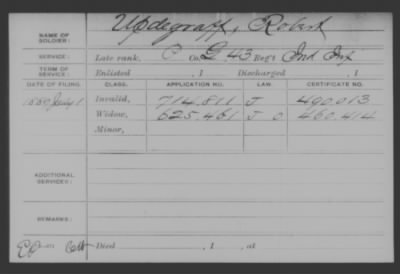 NAME OF SOLDIER: Updegraff, Robert
SERVICE: Late rank, Co. G 43 Reg't Ind Inf
TERM OF SERVICE: Enlisted , 1 Discharged , 1
DATE OF FILING. CLASS. APPLICATION NO. LAW CERTIFICATE NO.
July 1 Invalid, 714.811 J. 490.013
Widow, 625.461 J O 460.414
Minor,
ADDITIONAL SERVICES:
REMARKS:
Died , 1 , at